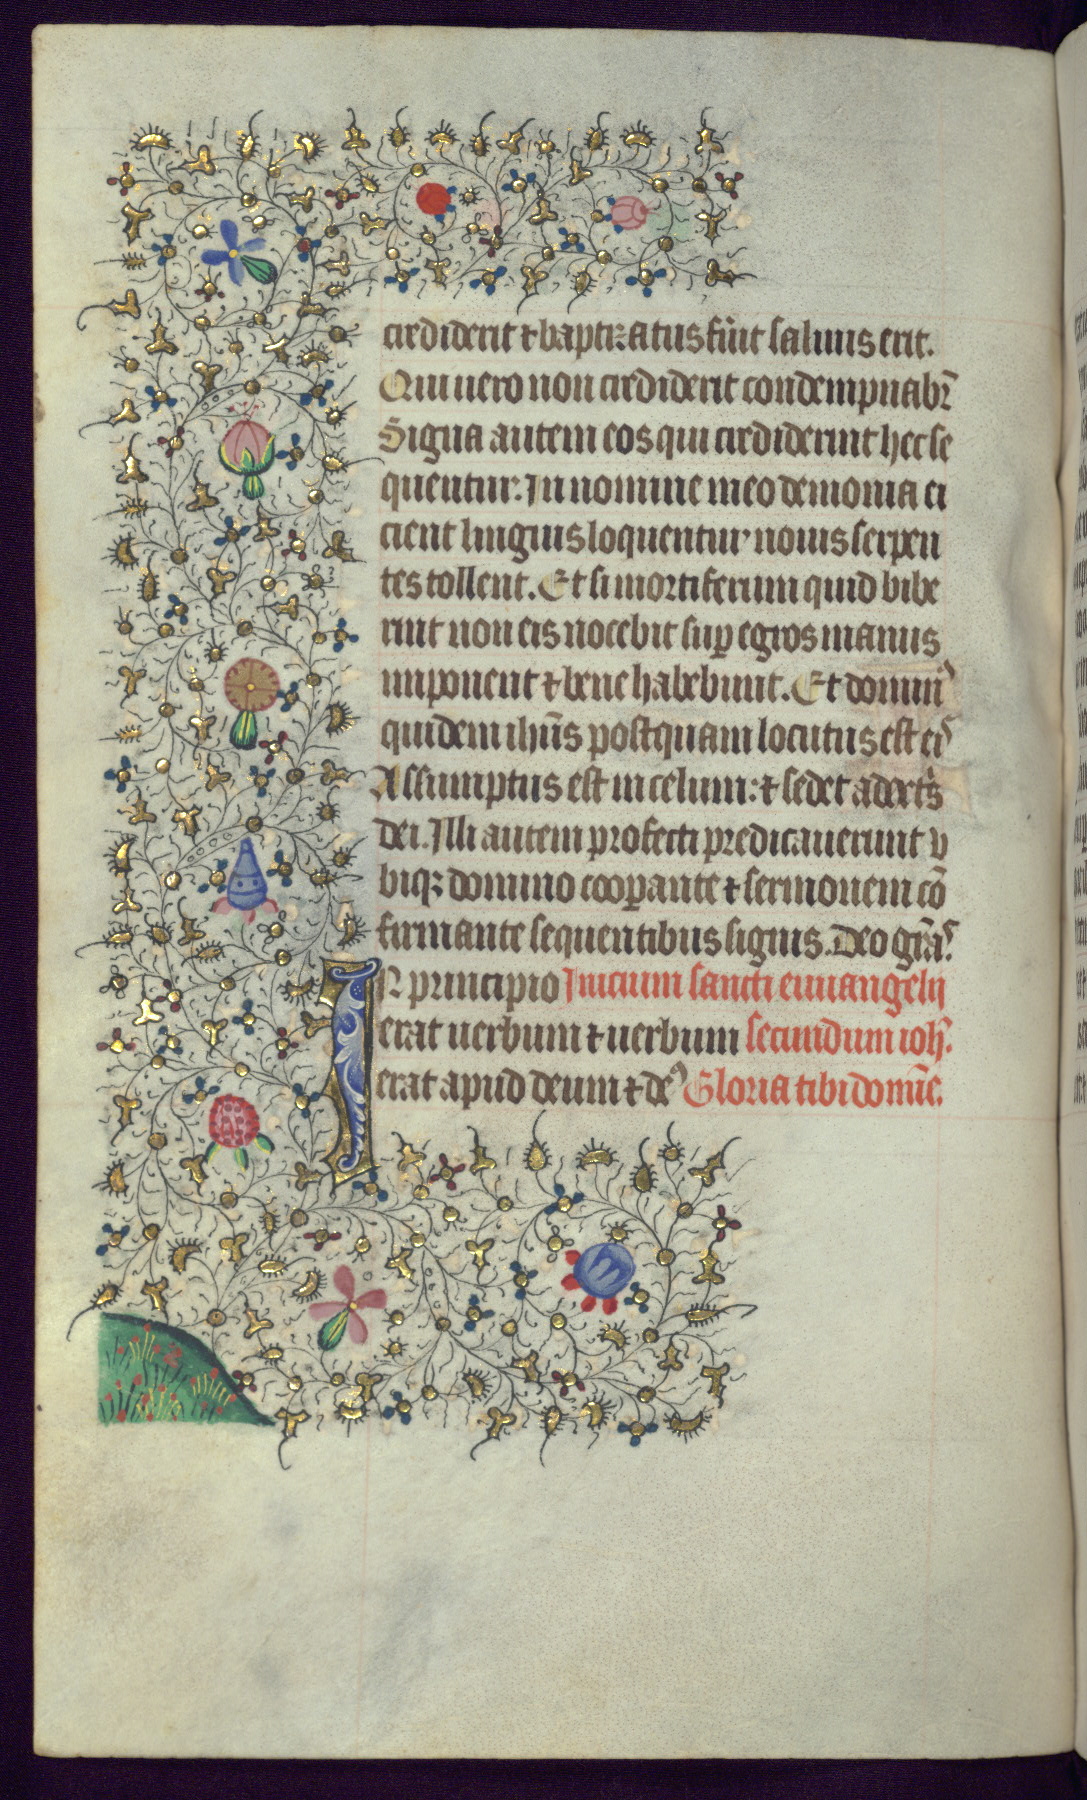 crediderit ⁊ baptizatus fu̅it saluus erit.
Qui uero non crediderit condempnabr̅
Signa autem eos qui crediderint hec se
quentur: In nomine meo demonia ei
cient linguis loquentur nouis serpen
tes tollent. Et si mortiferum quid bibe
rint non eis nocebit sup̱ egros manus
imponent ⁊ bene habebunt. Et domin᷒
quidem ihu̅s postquam locutus est eis
Assumptus est in celum: ⁊ sedet a dextˀs
dei. Illi autem profecti predicauerunt v
biqꝫ domino coop̱ante ⁊ sermonem co̅
firmante sequentibus signis. Deo gr̅as.
IN principio Inicium sancti euuangelij
erat uerbum ⁊ uerbum secundum ioh̅.
erat apud deum ⁊ deꝰ Gloria tibi domi̅e.